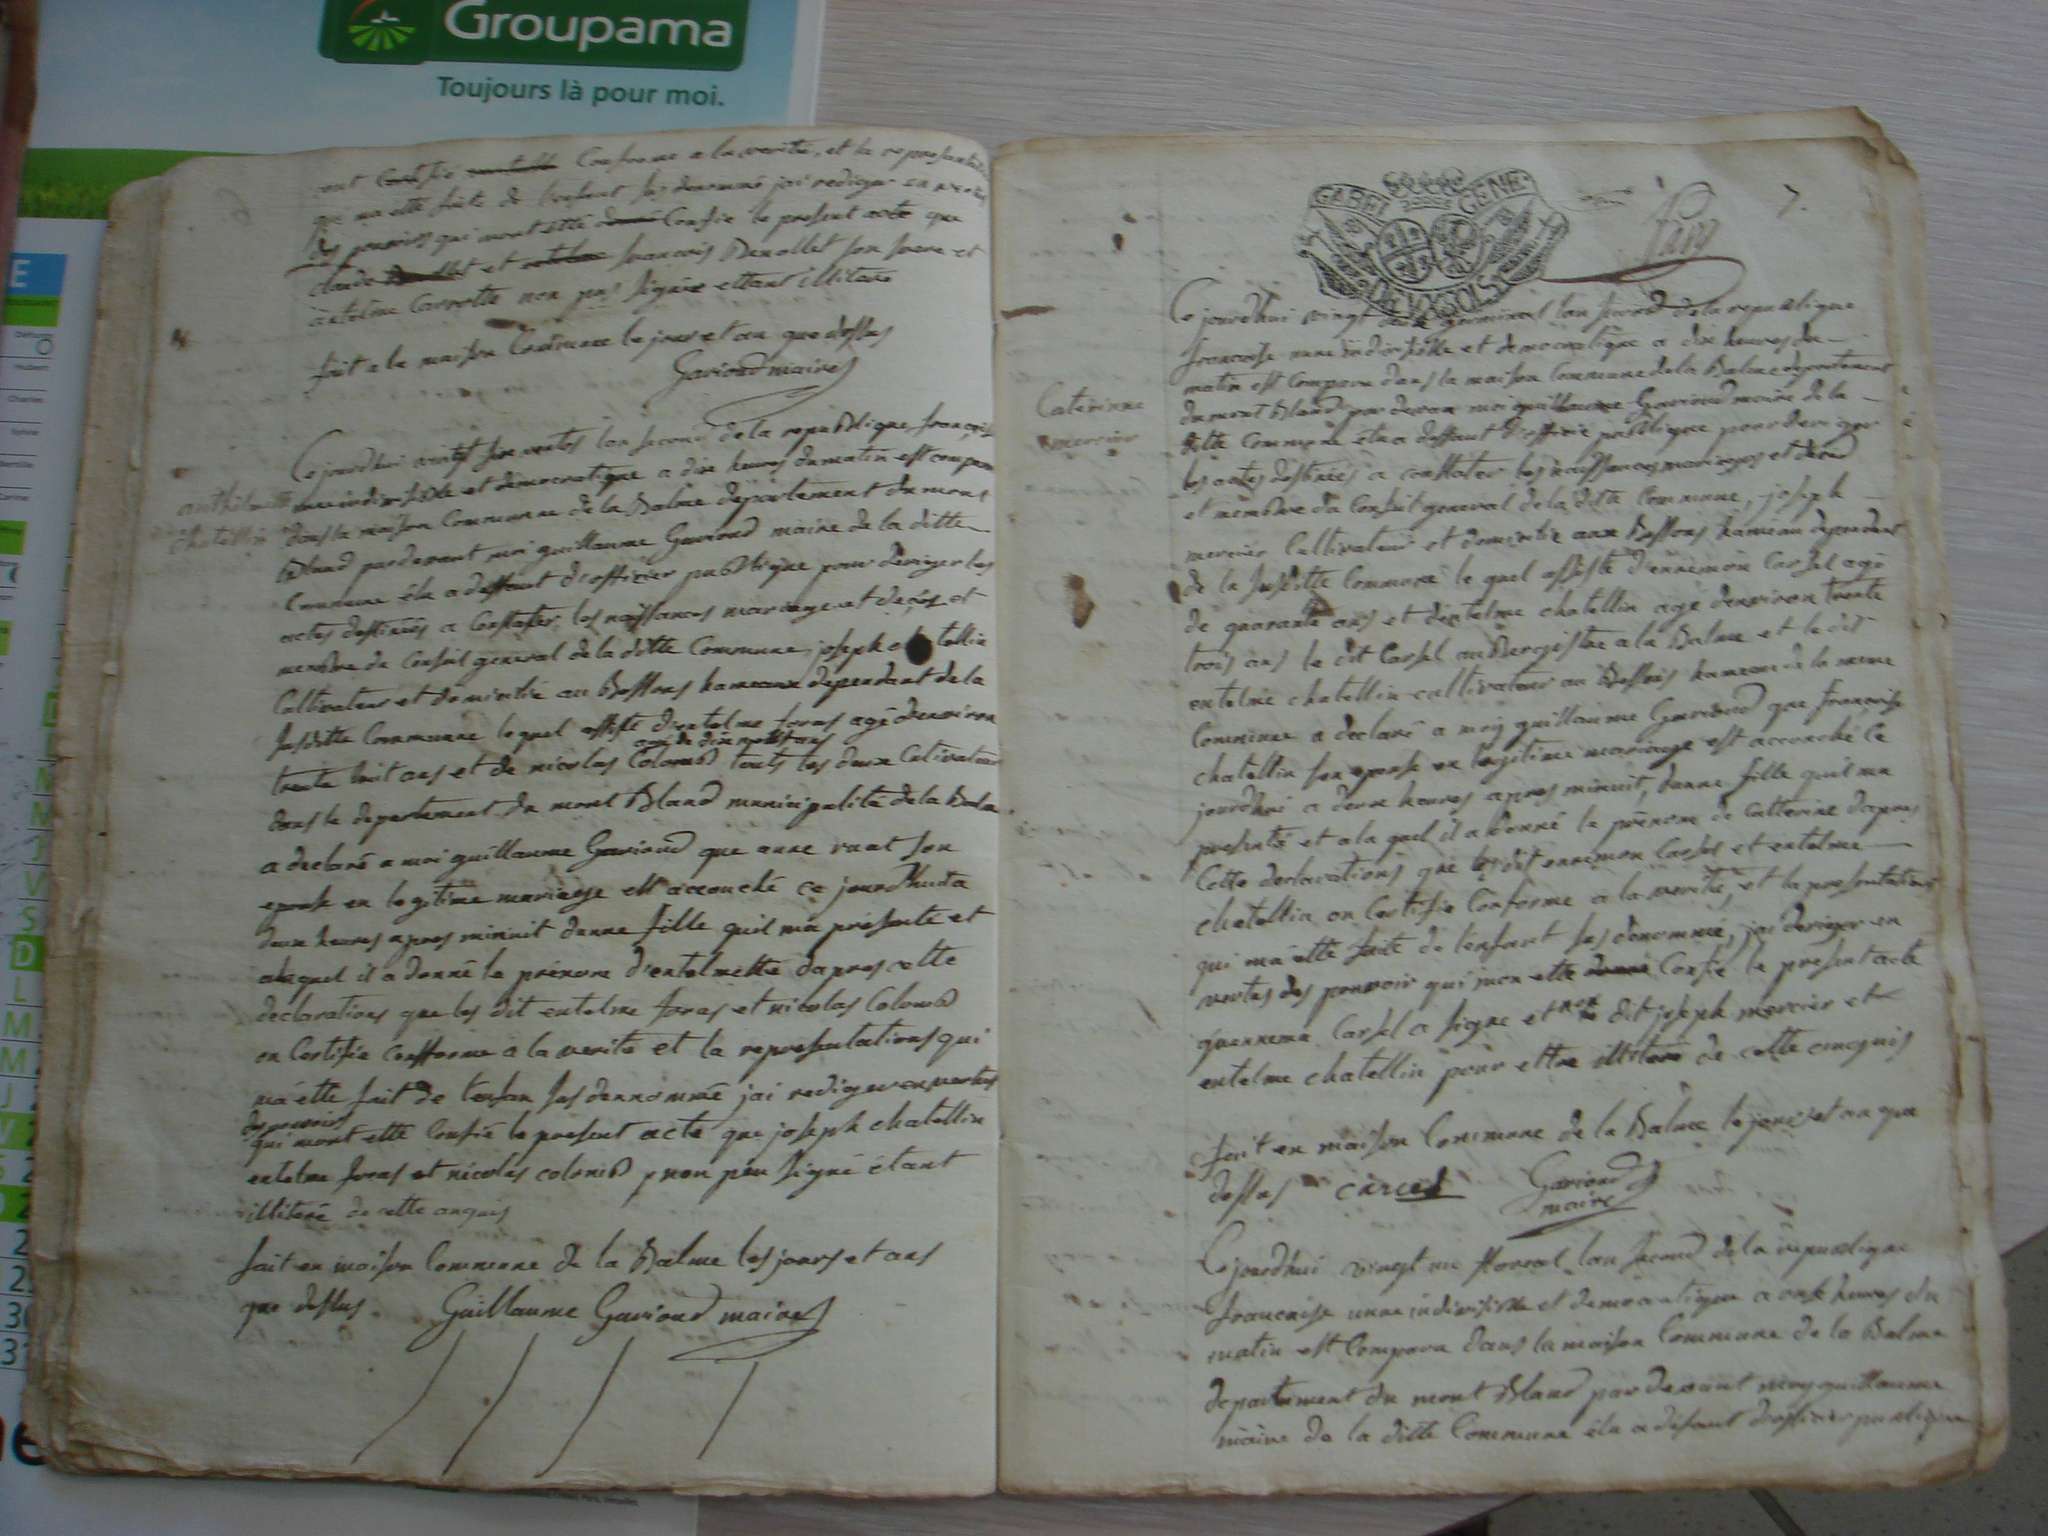 Groupama
Toujours là pour moi.
Conforme a la verité, et la representation
que ma ette faite de l'enfant sus denommé jai rediger en vertus
des pouvoirs qui mont etté Confie le present acte que
claude et francois son frere et
antelme non pas signée ettant illiterés
fait a la maison Commune le jour et an que dessus
Gavioud maire
Ce jourdhui vintst six ventos lan second de la republique francoise
une indivisible et democratique a dix heures du matin est comparu
anthelmette
chatellin
dans la maison Commune de la Balme departement du mont
Bland pardevant moi guillaume Gavioud maire de la ditte
Commune élu a deffaut d'officier publique pour deriger les
actes destinés a Constater les naissances mariage et decés et
membre du Conseil general de la ditte Commune, joseph chatellin
Cultivateur et domicilié au Bessons hameaux dependant de la
susditte Commune lequel assisté d'entelme foras agé denviron
trente huit ans et de nicolas Colomb touts les deux Cultivateurs
dans le departement du mont Bland municipalité de la Balme
a declaré a moi guillaume Gavioud que anne son
epouse en legitime mariage est accouché ce jourdhui a
deux heures apres minuit dunne fille quil ma présenté et
alaquel il a donné le prénom d'entelmette dapres cette
declarations que les dit entelme foras et nicolas Colomb
on Certifié conforme a la verité et la representations qui
ma ette fait de lenfan sus dennommé jai rediger en vertus
des pouvoirs
qui mont etté Confié le present acte que joseph chatellin
entelme foras et nicolas colomb non pas signé étant
illiteré de cette enquis
fait en maison Commune de la Balme les jours et ans
que dessus Guillaume Gavioud maire
7.
GABEL GENE
Ce jourdhui vingt deux germinal lan second de la republique
francoise unne indivisible et democratique a dix heures du
matin est Comparu dans la maison Commune de la Balme departement
Caterinne
mercier
du mont Bland par devan moi guillaume Gavioud maire de la
ditte Commune élu a deffaut d'officié publique pour deriger
les actes destinés a constater les naissances mariages et decéd
et membre du Conseil general de la ditte Commune, joseph
mercier Cultivateur et domicilié aux Bessons hameau dependant
de la susditte Commune le quel assisté d'ennemon Carsel agé
de quarante ans et dentelme chatellin agé denviron trente
trois ans le dit Carsel aubergiste a la Balme et le dit
entelme chatellin cultivateur au Bessons hameau de la meme
Commune a declaré a moy guillaume Gavioud que françoise
chatellin son epouse en legitime mariage est accouché Ce
jourdhui a deux heures apres minuit, dunne fille quil ma
presenté et a la quel il a donné le prénom de Catterine dapres
Cette declarations que les dit ennemon Carsel et entelme
chatellin on Certifié Conforme a la verité, et la presentations
qui ma ette faite de l'enfant sus denommé, jai deriger en
vertus des pouvoir qui mon etté Confié le present acte
quennemo Carsel a signé et non dit joseph mercier et
entelme chatellin pour ettre illiteré de cette enquis
fait en maison Commune de la Balme le jour et an que
dessus carcel Gavioud
maire
Ce jourdhui vingt un floreal lan second de la republique
francoise unne indivisible et democratique a onze heures du
matin est Comparu dans la maison Commune de la Balme
departement du mont Bland par devant moy guillaume
maire de la ditte Commune élu a defaut dofficier publique